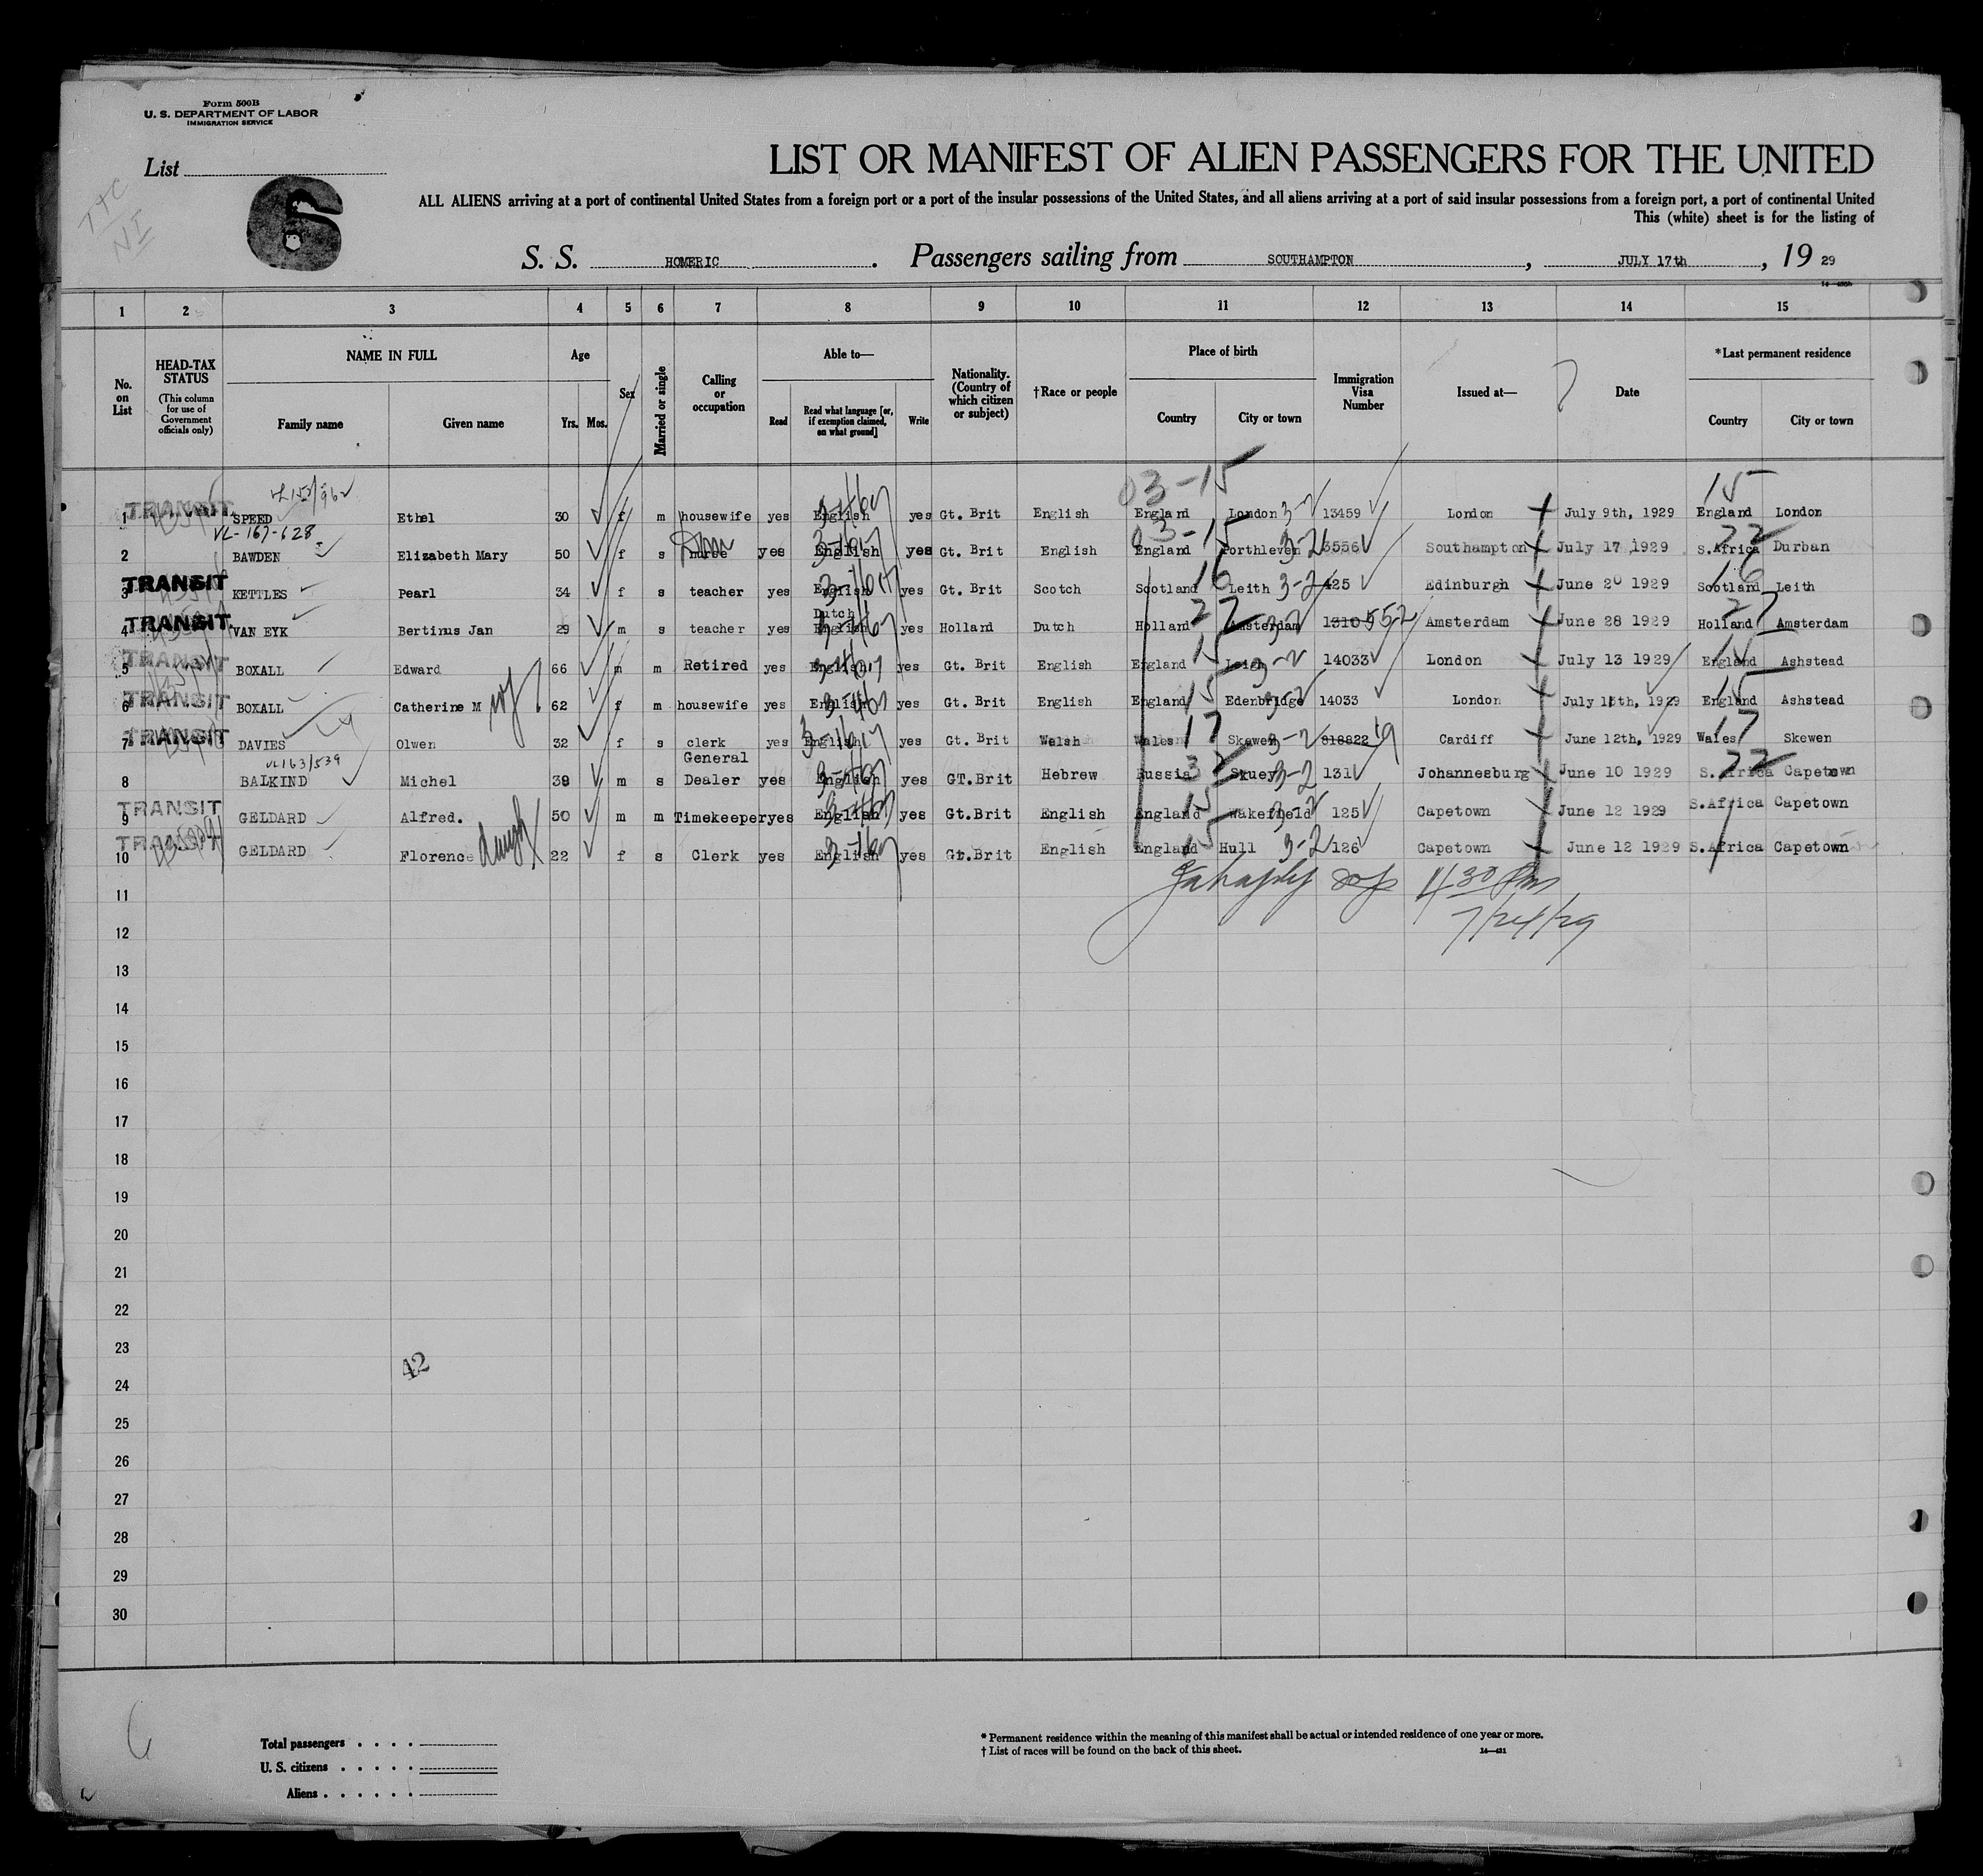 Form 500B
U. S. DEPARTMENT OF LABOR
IMMIGRATION SERVICE
List
6
LIST OR MANIFEST OF ALIEN PASSENGERS FOR THE UNITED
ALL ALIENS arriving at a port of continental United States from a foreign port or a port of the insular possessions of the United States, and all aliens arriving at a port of said insular possessions from a foreign port, a port of continental United
This (white) sheet is for the listing of
S. S. HOMERIC. Passengers sailing from SOUTHAMPTON, JULY 17th, 19 29
1 2 3 4 5 6 7 8 9 10 11 12 13 14 15
No. on List
HEAD-TAX STATUS (This column for use of Government officials only)
NAME IN FULL
Family name Given name
Age
Yrs. Mos.
Sex
Married or single
Calling or occupation
Able to—
Read Read what language [or, if exemption claimed, on what ground] Write
Nationality. (Country of which citizen or subject)
†Race or people
Place of birth
Country City or town
Immigration Visa Number
Issued at—
Date
*Last permanent residence
Country City or town
03-15 15
1 TRANSIT SPEED Ethel 30 f m housewife yes English yes Gt. Brit English England London 3-2 13459 London July 9th, 1929 England London
VL-163-628
03-15 22
2 BAWDEN Elizabeth Mary 50 f s nurse yes English yes Gt. Brit English England Porthleven 3-2 3556 Southampton July 17 1929 S.Africa Durban
3 TRANSIT KETTLES Pearl 34 f s teacher yes English yes Gt. Brit Scotch Scotland 16 Leith 3-2 425 Edinburgh June 20 1929 Scotland 16 Leith
4 TRANSIT VAN EYK Bertinus Jan 29 m s teacher yes Dutch English yes Holland Dutch Holland Amsterdam 1310 552 Amsterdam June 28 1929 Holland Amsterdam
5 TRANSIT BOXALL Edward 66 m m Retired yes English yes Gt. Brit English England 15 Leigh 3-2 14033 London July 13 1929 England 15 Ashstead
6 TRANSIT BOXALL Catherine M wf 62 f m housewife yes English yes Gt. Brit English England 15 Edenbridge 3-2 14033 London July 15th, 1929 England 15 Ashstead
7 TRANSIT DAVIES Olwen 32 f s clerk yes English yes Gt. Brit Welsh Wales 17 Skewen 3-2 818822 19 Cardiff June 12th, 1929 Wales 17 Skewen
VL163/539
8 BALKIND Michel 39 m s General Dealer yes English yes GT.Brit Hebrew Russia 3-2 131 Johannesburg June 10 1929 S.Africa 22 Capetown
9 TRANSIT GELDARD Alfred. 50 m m Timekeeper yes English yes Gt.Brit English England 15 Wakefield 3-2 125 Capetown June 12 1929 S.Africa Capetown
10 TRANSIT GELDARD Florence daugh 22 f s Clerk yes English yes Gt.Brit English England 15 Hull 3-2 126 Capetown June 12 1929 S.Africa Capetown
11 4 30 Pm
12 7/24/29
13
14
15
16
17
18
19
20
21
22
23
42
24
25
26
27
28
29
30
Total passengers
U. S. citizens
Aliens
* Permanent residence within the meaning of this manifest shall be actual or intended residence of one year or more.
† List of races will be found on the back of this sheet.
14—431